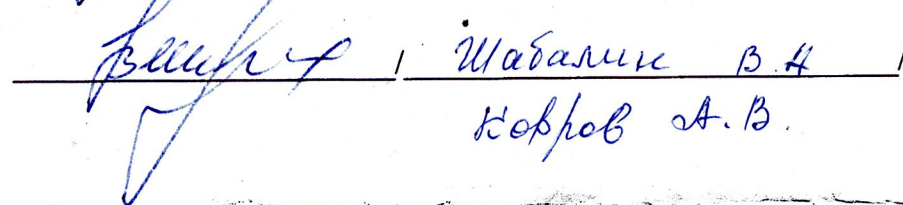 / Шабалин В.А /
Ковров А.В.